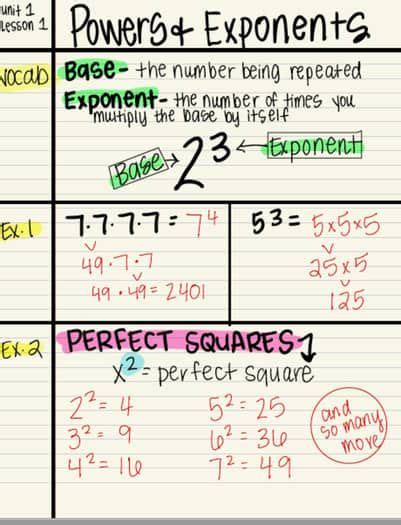 unit 1
Lesson 1
Powers & Exponents
vocab
Base- the number being repeated
Exponent- the number of times you
multiply the base by itself
Base → 2³ ← Exponent
Ex. 1
7·7·7·7 = 7⁴
49·7·7
49·49 = 2401
53 = 5x5x5
25x5
125
Ex. 2
PERFECT SQUARES
x² = perfect square
2² = 4
3² = 9
4² = 16
5² = 25
6² = 36
7² = 49
and
so many
more